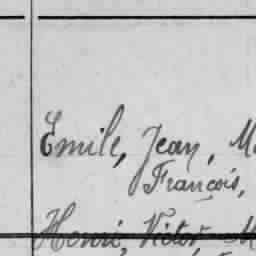 Emile, Jean, M
François,
Henri, Victor, M